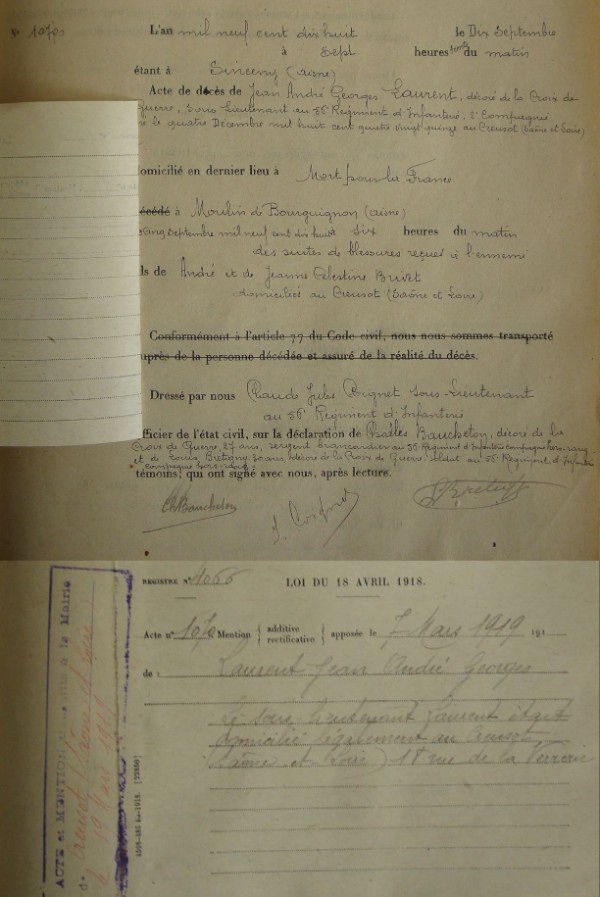 N° 1070
L'an mil neuf cent dix huit le Dix Septembre
à sept heures du matin
étant à Sinceny (aisne)
Acte de décès de Jean André Georges Laurent, décoré de la Croix de
Guerre, Sous-Lieutenant au 56 Régiment d'Infanterie, 2e Compagnie
né le quatre Décembre mil huit cent quatre vingt quinze au Creusot (Saône et Loire)
omicilié en dernier lieu à Mort pour la France
écédé à Moulin de Bourguignon (aisne)
cinq septembre mil neuf cent dix huit six heures du matin
des suites de blessures reçues à l'ennemi
ls de André et de Jeanne Célestine Brivet
domiciliés au Creusot (Saône et Loire)
Conformément à l'article 77 du Code civil, nous nous sommes transporté
auprès de la personne décédée et assuré de la réalité du décès.
Dressé par nous Claude Jules Sous-Lieutenant
au 56e Régiment d'Infanterie
officier de l'état civil, sur la déclaration de Charles Baucheton, décoré de la
Croix de Guerre, 27 ans, sergent brancardier au 56e Régiment d'Infanterie compagnie hors rang
et de Louis ans, décoré de la Croix de Guerre soldat au 56e Régiment d'Infanterie
compagnie hors rang
témoins, qui ont signé avec nous, après lecture.
Ch Baucheton
REGISTRE N° 4066 LOI DU 18 AVRIL 1918.
Acte n° 1070 Mention additive rectificative apposée le 7 Mars 1919 191
de : Laurent Jean André Georges
Le sous lieutenant Laurent était
domicilié légalement au Creusot
Saône et Loire) 18 rue de la Verrerie
ACTE et MENTION à la Mairie
de Creusot (Saône et Loire)
le 19 Mars 1919